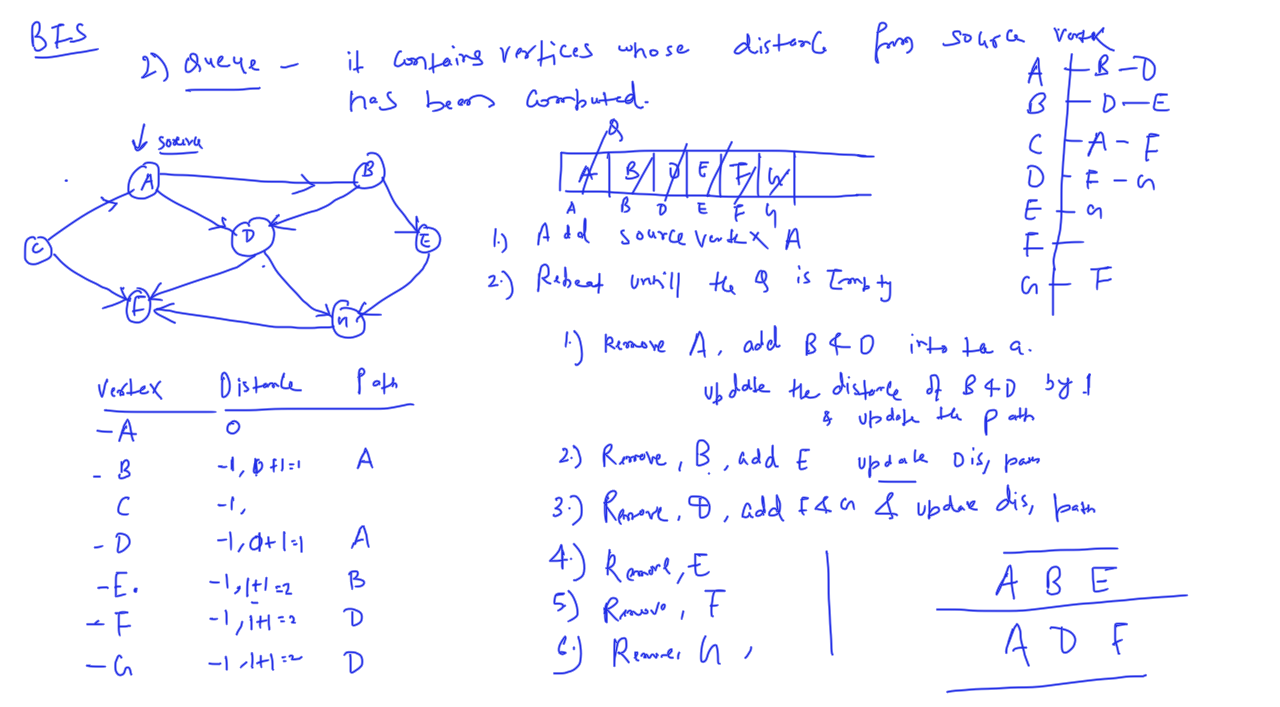 BFS
2) Queue - it contains vertices whose distance from source vertex
has been computed.
A - B - D
B - D - E
C - A - F
D - F - G
E - G
F -
G - F
source
A
B
C
D
E
F
G
Q
A B D E F G
A B D E F G
1.) Add source vertex A
2.) Repeat untill the Q is Empty
1.) Remove A, add B & D into the Q.
update the distance of B & D by 1
& update the path
2.) Remove, B, add E update Dis, path
3.) Remove, D, add F & G & update dis, path
4.) Remove, E
5) Remove, F
6.) Remove, G,
Vertex Distance Path
- A 0
- B -1, 0+1=1 A
C -1,
- D -1, 0+1=1 A
- E. -1, 1+1=2 B
- F -1, 1+1=2 D
- G -1, 1+1=2 D
A B E
A D F